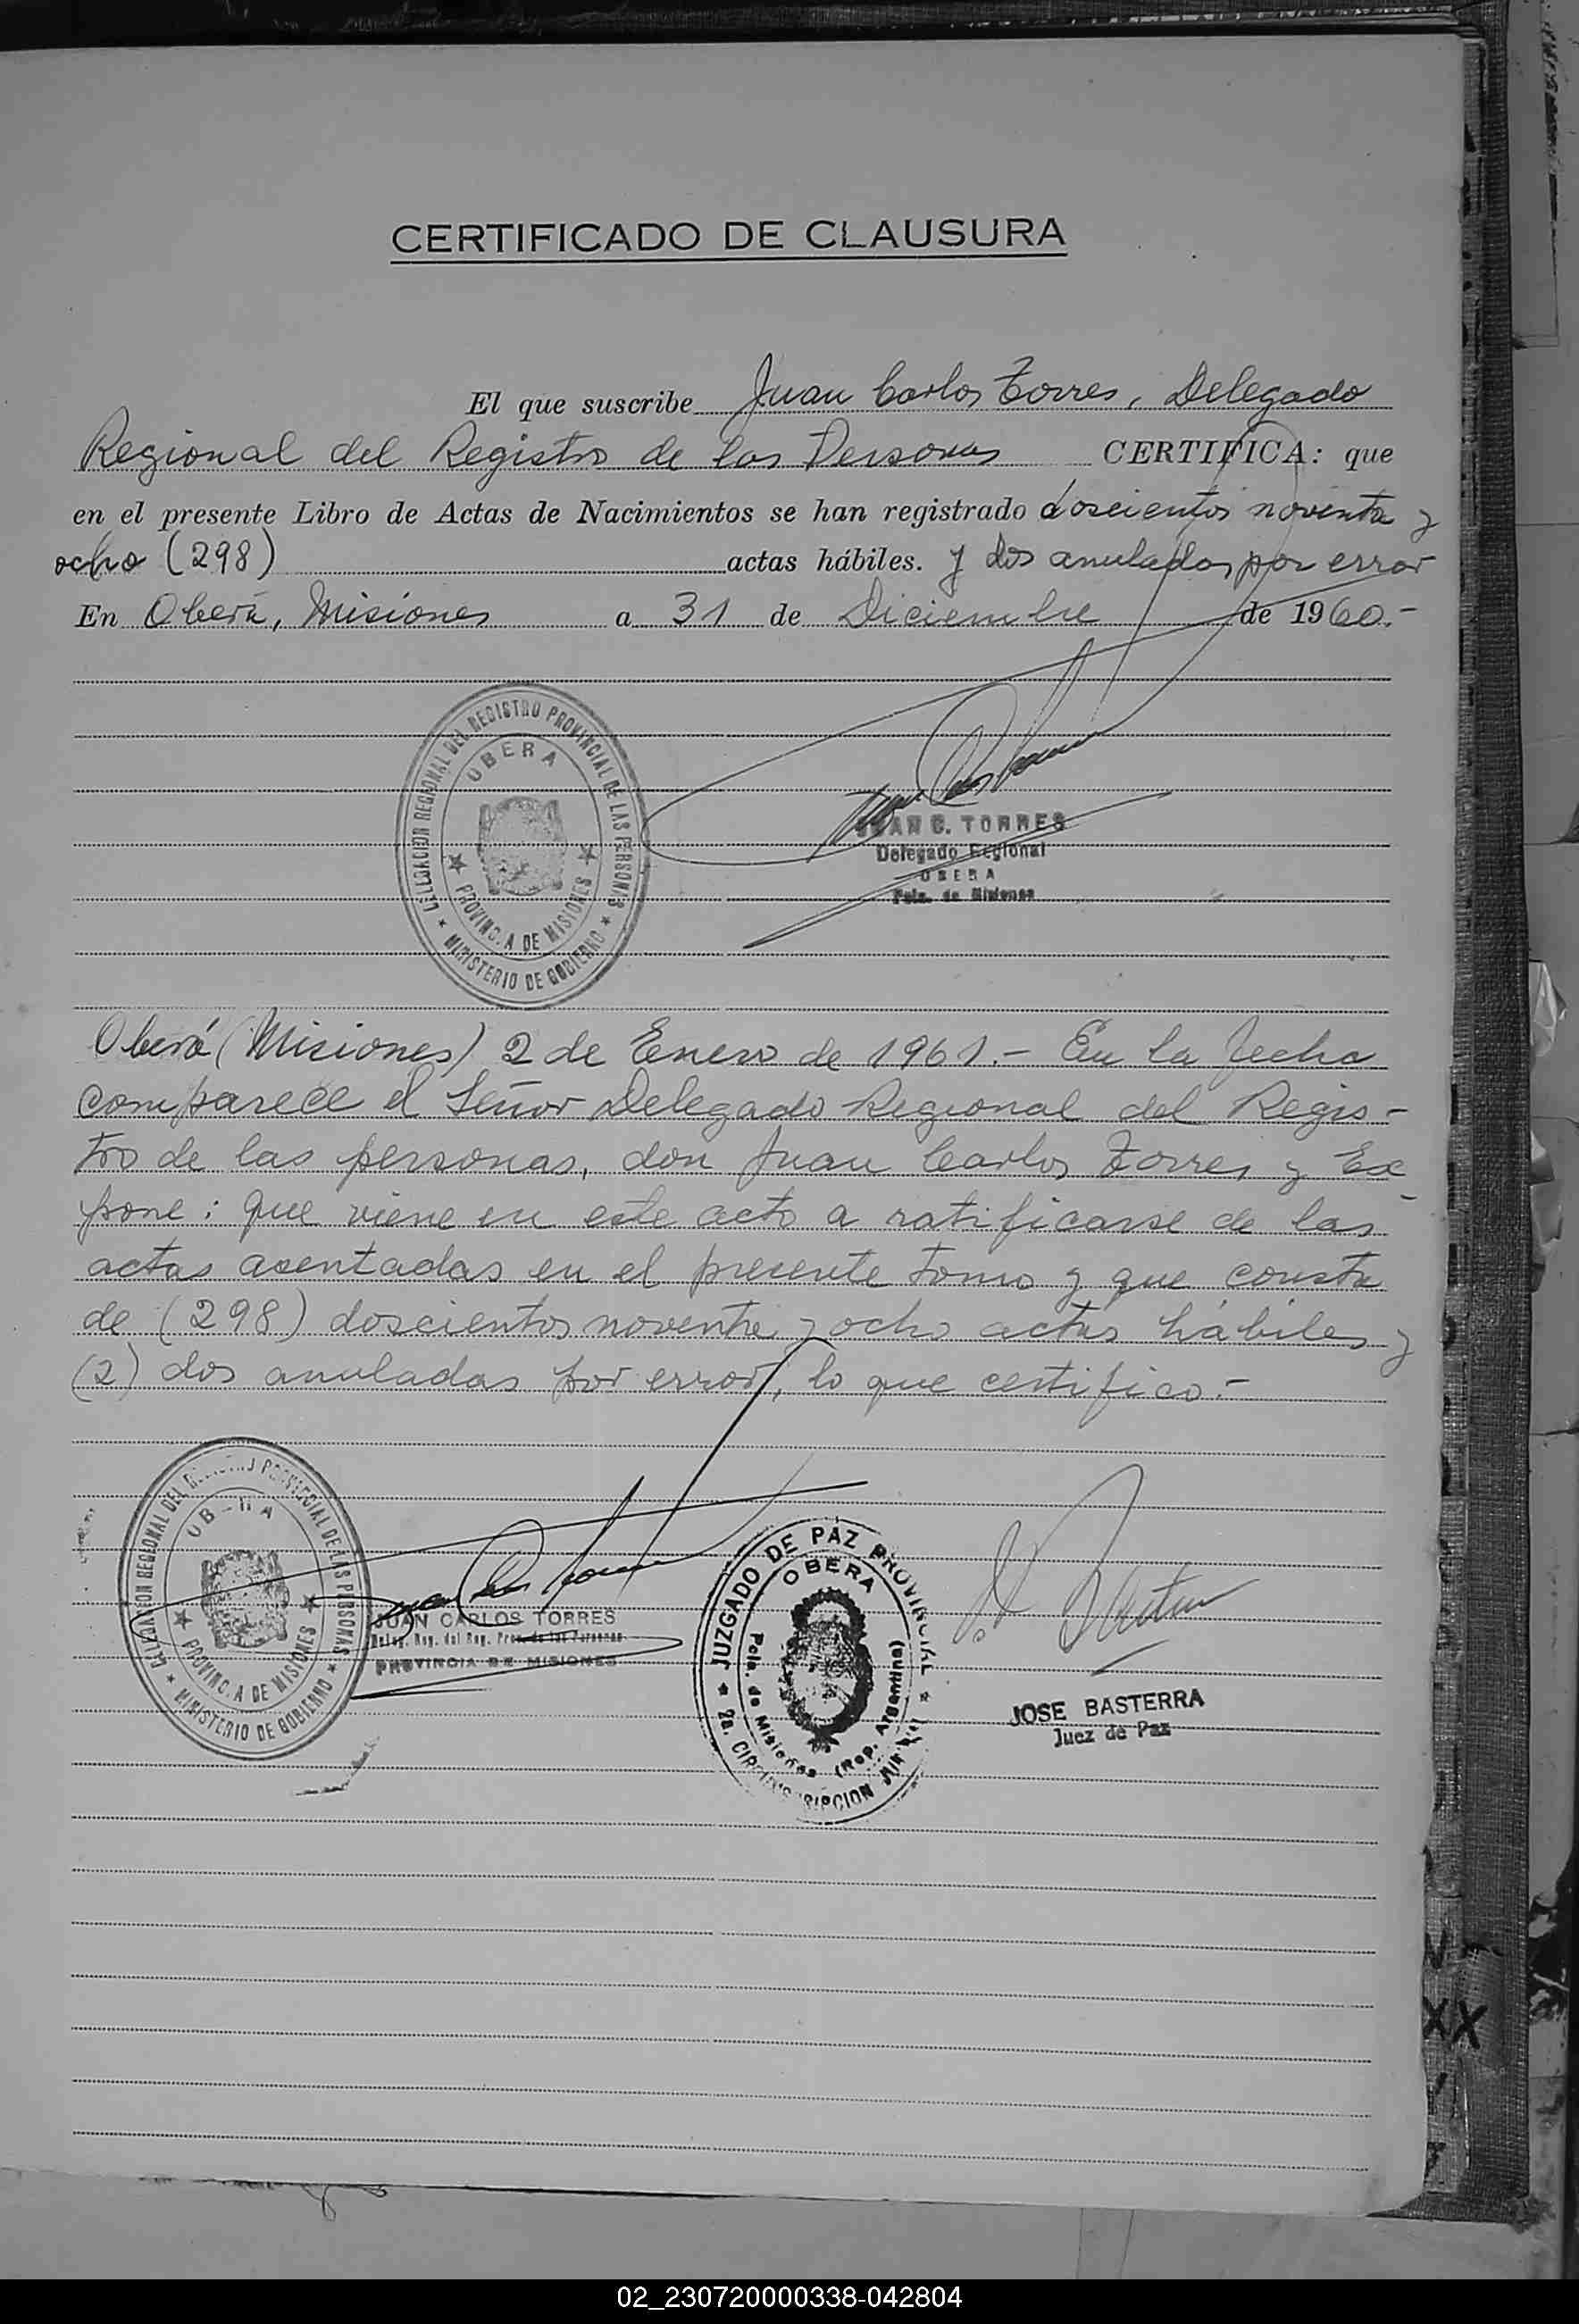 CERTIFICADO DE CLAUSURA
El que suscribe Juan Carlos Torres, Delegado
Regional del Registro de las Personas CERTIFICA: que
en el presente Libro de Actas de Nacimientos se han registrado doscientos noventa y
ocho (298) actas hábiles. y dos anuladas por error
En Oberá, Misiones a 31 de Diciembre de 1960.-
DELEGACION REGIONAL DEL REGISTRO PROVINCIAL DE LAS PERSONAS
OBERA
PROVINCIA DE MISIONES
MINISTERIO DE GOBIERNO
JUAN C. TORRES
Delegado Regional
OBERA
Pcia. de Misiones
Oberá (Misiones) 2 de Enero de 1961.- En la fecha
comparece el Señor Delegado Regional del Regis-
tro de las personas, don Juan Carlos Torres y Ex-
pone: que viene en este acto a ratificarse de las
actas asentadas en el presente tomo y que consta
de (298) doscientos noventa y ocho actas hábiles y
(2) dos anuladas por error, lo que certifico.-
DELEGACION REGIONAL DEL REGISTRO PROVINCIAL DE LAS PERSONAS
OBERA
PROVINCIA DE MISIONES
MINISTERIO DE GOBIERNO
JUAN CARLOS TORRES
Deleg. Reg. del Reg. Prov. de las Personas
PROVINCIA DE MISIONES
JUZGADO DE PAZ PROVINCIAL
OBERA
Pcia. de Misiones (Rep. Argentina)
2a. CIRCUNSCRIPCION JUDICIAL
JOSE BASTERRA
Juez de Paz
XX
02_230720000338-042804